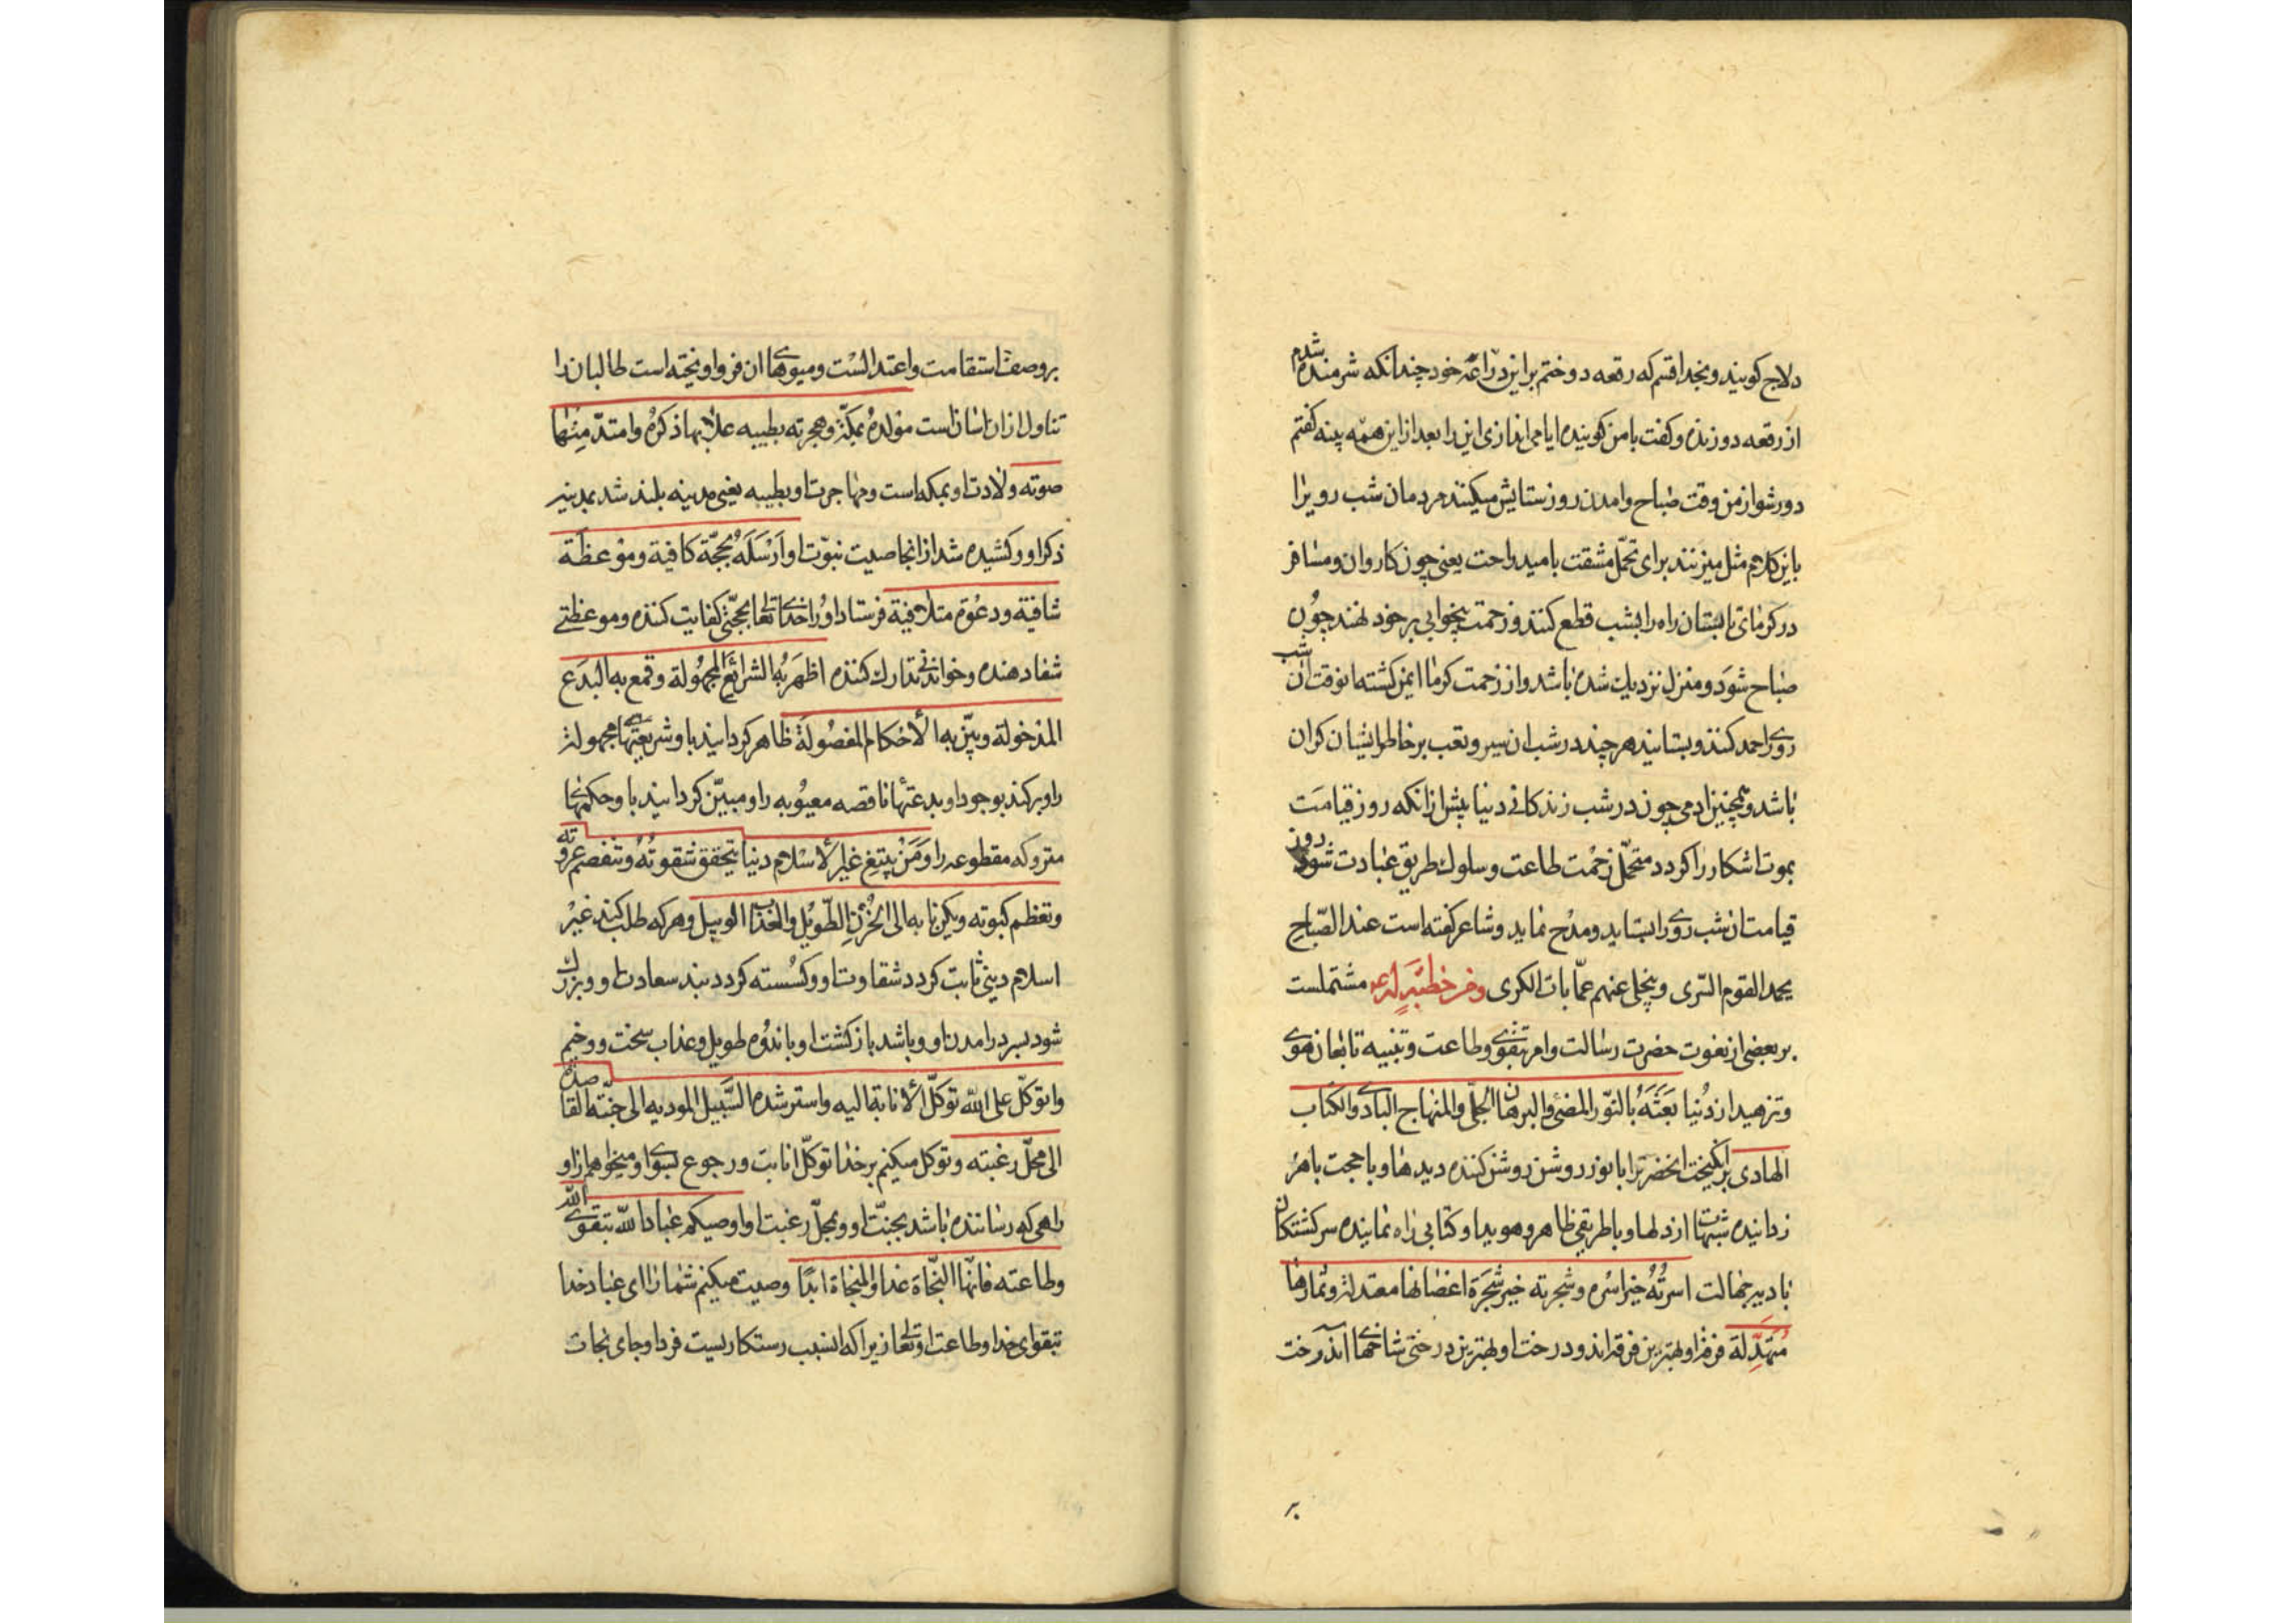 دلاج کویند و بخدا قسم که رقعه دوختم براین درّاعۀ خود چندانکه شرمنده شدم
از رقعه دوزنده و کفت با من کوینده ایا می اندازی این را بعد از این همه پینه کفتم
دور شو از من وقت صباح و امدن روز ستایش میکنند مردمان شب رویرا
باین کلام مثل میزنند برای تحمّل مشقت بامید راحت یعنی چون کاروان و مسافر
در کرمای تابستان راه را بشب قطع کنند و زحمت بیخوابی بر خود نهند چون
صباح شود و منزل نزدیک شده باشد و از زحمت کرما ایمن کشته انوقت ان شب
رویرا حمد کنند و بستایند هر چند در شب ان سیر و تعب بر خاطر ایشان کران
باشد و همچنین ادمی چون در شب زندکانی دنیا پیش از انکه روز قیامت
بموت اشکارا کردد متحمّل زحمت طاعت و سلوک طریق عبادت شود روز
قیامت ان شب رویرا بستاید و مدح نماید و شاعر کفته است عند الصّباح
یحمد القوم السّری و ینجلی عنهم عمّایات الکری ومن خطبة له ع مشتملست
بر بعضی از نعوت حضرت رسالت و امر بتقوی و طاعت و تنبیه تابعان هوی
و تزهید از دنیا بَعَثَهُ بالنّور المضیٔ والبرهان الجلیّ والمنهاج البادی والکتاب
الهادی برانکیخت انحضرترا با نور روشن روشن کننده دیدها و با حجت باهر
زداینده شبهتها از دلها و با طریقی ظاهر و هویدا و کتابی راه نماینده سرکشتکان
بادیه جهالت اسرتُهُ خیر اسره و شجرته خیر شجَرَة اغصانها معتدلة و ثمارها
مُتَهَدِّلة فرقۀ او بهترین فرقه اند و درخت او بهترین درختی شاخهای اندرخت
بر
بر وصف استقامت و اعتدالست و میوهای ان فرو اویخته است طالبان را
تناول از ان اسان است مولده بمکّة و هجرته بطیبه علا بها ذکره وامتدّ منها
صوته ولادت او بمکه است و مهاجرت او بطیبه یعنی مدینه بلند شد بمدینه
ذکر او و کشیده شد از انجا صیت نبوّت او اَرْسَلَهُ بحجّة کافیة وموعظَة
شافیة ودعوة متلافیة فرستاد او را خدای تعالی بحجّتی کفایت کننده و موعظتی
شفا دهنده و خواندنی تدارک کننده اظهَر به الشرائع المجهولة وقمع به البدَع
المدخولة وبیّن به الأحکام المفصُولَة ظاهر کردانید باو شریعتهای مجهوله
را و برکند بوجود او بدعتهای ناقصه معیوبه را و مبیّن کردانید باو حکمهای
متروکه مقطوعه را وَمَنْ یبتغ غیر الأسلام دینا یتحقق شقوتُهُ وتنفصم عروته
وتعظم کبوته ویکن مابه الی الحُزنِ الطّویل والعَذاب الوبیل و هر که طلب کند غیر
اسلام دینی ثابت کردد شقاوت او و کسسته کردد بند سعادت او و بزرک
شود بسر درامدن او و باشد بازکشت او باندوه طویل و عذاب سخت و وخیم
واتوکّل علی الله توکّل الأنابة الیه واسترشده السَّبیل المودیه الی جنّته القاصدة
الی محلّ رغبته و توکل میکنم بر خدا توکّل انابت و رجوع بسوی او و میخواهم از او
راهی که رساننده باشد بجنّت او و بمحلّ رغبت او اوصیکم عباد الله بتقوی الله
وطاعته فانّها النّجاة غدا والمنجاة ابدًا وصیت میکنم شما را ای عباد خدا
بتقوای خدا و طاعت او تعالی زیرا که انسبب رستکاریست فردا و جای نجات